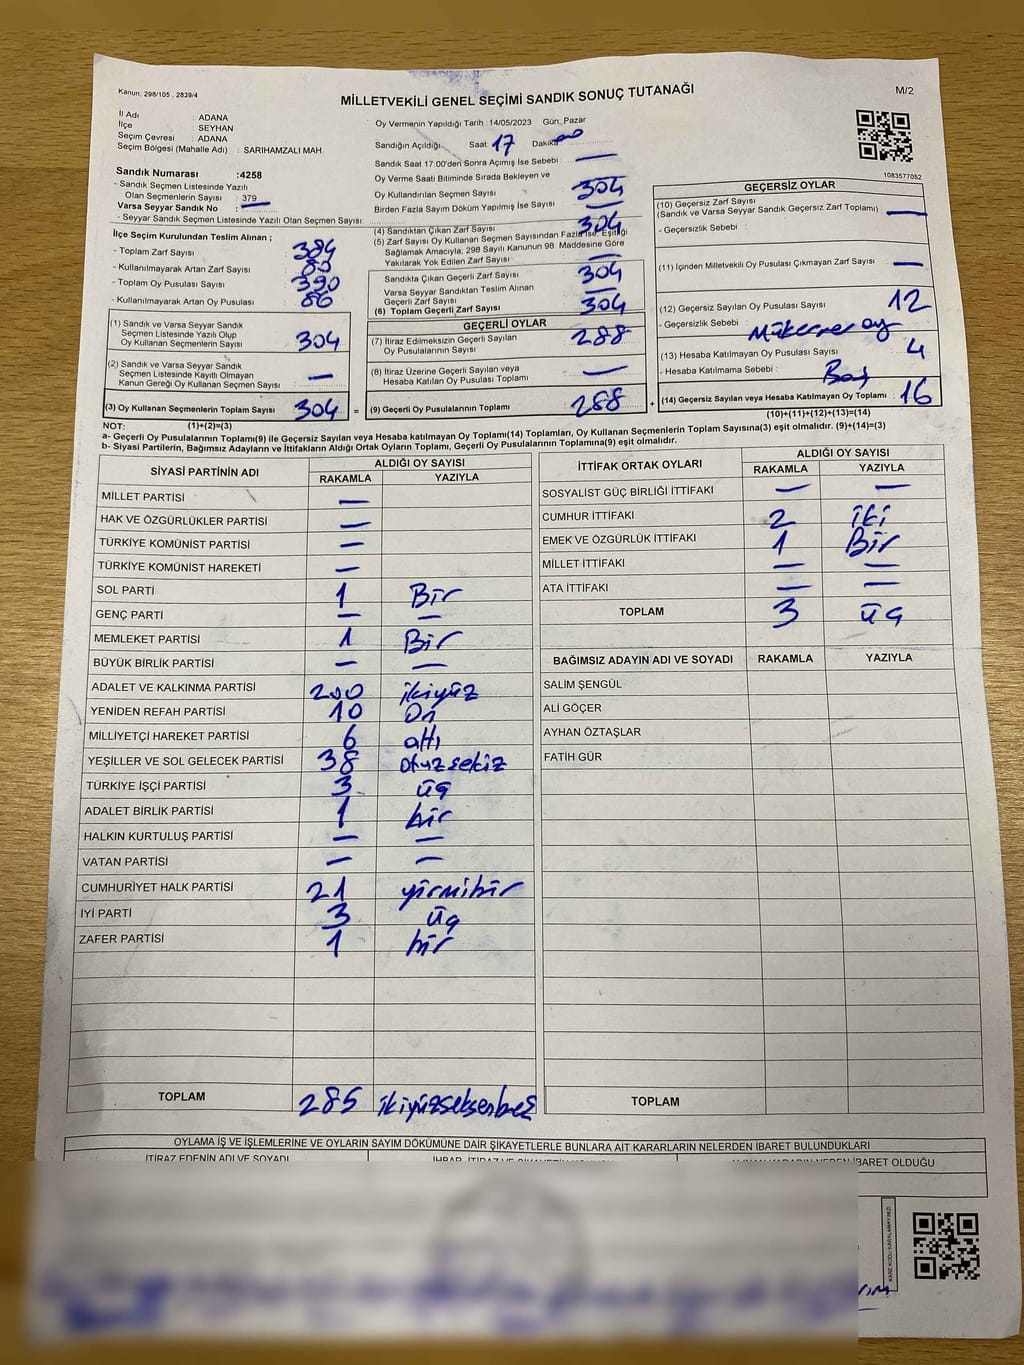 Kanun, 298/105 , 2839/4
MİLLETVEKİLİ GENEL SEÇİMİ SANDIK SONUÇ TUTANAĞI
M/2
İl Adı : ADANA
İlçe : SEYHAN
Seçim Çevresi : ADANA
Seçim Bölgesi (Mahalle Adı) : SARIHAMZALI MAH.
Sandık Numarası :4258
- Sandık Seçmen Listesinde Yazılı
Olan Seçmenlerin Sayısı : 379
Varsa Seyyar Sandık No : —
- Seyyar Sandık Seçmen Listesinde Yazılı Olan Seçmen Sayısı:
Oy Vermenin Yapıldığı Tarih :14/05/2023 Gün: Pazar
Sandığın Açıldığı Saat: 17 Dakika: 00
Sandık Saat 17.00'den Sonra Açımış İse Sebebi : —
Oy Verme Saati Bitiminde Sırada Bekleyen ve
Oy Kullandırılan Seçmen Sayısı : 304
Birden Fazla Sayım Döküm Yapılmış İse Sayısı : —
(4) Sandıktan Çıkan Zarf Sayısı : 304
(5) Zarf Sayısı Oy Kullanan Seçmen Sayısından Fazla İse, Eşitliği
Sağlamak Amacıyla, 298 Sayılı Kanunun 98. Maddesine Göre
Yakılarak Yok Edilen Zarf Sayısı : —
1083577052
İlçe Seçim Kurulundan Teslim Alınan ;
- Toplam Zarf Sayısı : 384
- Kullanılmayarak Artan Zarf Sayısı :
- Toplam Oy Pusulası Sayısı : 390
- Kullanılmayarak Artan Oy Pusulası : 86
(1) Sandık ve Varsa Seyyar Sandık
Seçmen Listesinde Yazılı Olup
Oy Kullanan Seçmenlerin Sayısı : 304
(2) Sandık ve Varsa Seyyar Sandık
Seçmen Listesinde Kayıtlı Olmayan
Kanun Gereği Oy Kullanan Seçmen Sayısı : —
(3) Oy Kullanan Seçmenlerin Toplam Sayısı : 304 =
Sandıkta Çıkan Geçerli Zarf Sayısı : 304
Varsa Seyyar Sandıktan Teslim Alınan
Geçerli Zarf Sayısı : —
(6) Toplam Geçerli Zarf Sayısı : 304
GEÇERLİ OYLAR
(7) İtiraz Edilmeksizin Geçerli Sayılan
Oy Pusulalarının Sayısı : 288
(8) İtiraz Üzerine Geçerli Sayılan veya
Hesaba Katılan Oy Pusulası Toplamı : —
(9) Geçerli Oy Pusulalarının Toplamı : 288 +
GEÇERSİZ OYLAR
(10) Geçersiz Zarf Sayısı
(Sandık ve Varsa Seyyar Sandık Geçersiz Zarf Toplamı) : —
- Geçersizlik Sebebi :
(11) İçinden Milletvekili Oy Pusulası Çıkmayan Zarf Sayısı : —
(12) Geçersiz Sayılan Oy Pusulası Sayısı : 12
- Geçersizlik Sebebi : Mükerrer oy
(13) Hesaba Katılmayan Oy Pusulası Sayısı : 4
- Hesaba Katılmama Sebebi : Boş
(14) Geçersiz Sayılan veya Hesaba Katılmayan Oy Toplamı : 16
(10)+(11)+(12)+(13)=(14)
NOT: (1)+(2)=(3)
a- Geçerli Oy Pusulalarının Toplamı(9) ile Geçersiz Sayılan veya Hesaba katılmayan Oy Toplamı(14) Toplamları, Oy Kullanan Seçmenlerin Toplam Sayısına(3) eşit olmalıdır. (9)+(14)=(3)
b- Siyasi Partilerin, Bağımsız Adayların ve İttifakların Aldığı Ortak Oyların Toplamı, Geçerli Oy Pusulalarının Toplamına(9) eşit olmalıdır.
SİYASİ PARTİNİN ADI ALDIĞI OY SAYISI
RAKAMLA YAZIYLA
MİLLET PARTİSİ —
HAK VE ÖZGÜRLÜKLER PARTİSİ —
TÜRKİYE KOMÜNİST PARTİSİ —
TÜRKİYE KOMÜNİST HAREKETİ —
SOL PARTİ 1 Bir
GENÇ PARTİ — —
MEMLEKET PARTİSİ 1 Bir
BÜYÜK BİRLİK PARTİSİ — —
ADALET VE KALKINMA PARTİSİ 200 ikiyüz
YENİDEN REFAH PARTİSİ 10 On
MİLLİYETÇİ HAREKET PARTİSİ 6 altı
YEŞİLLER VE SOL GELECEK PARTİSİ 38 otuzsekiz
TÜRKİYE İŞÇİ PARTİSİ 3 üç
ADALET BİRLİK PARTİSİ 1 bir
HALKIN KURTULUŞ PARTİSİ — —
VATAN PARTİSİ — —
CUMHURİYET HALK PARTİSİ 21 yirmibir
İYİ PARTİ 3 üç
ZAFER PARTİSİ 1 bir
TOPLAM 285 ikiyüzseksenbeş
İTTİFAK ORTAK OYLARI ALDIĞI OY SAYISI
RAKAMLA YAZIYLA
SOSYALİST GÜÇ BİRLİĞİ İTTİFAKI — —
CUMHUR İTTİFAKI 2 iki
EMEK VE ÖZGÜRLÜK İTTİFAKI 1 Bir
MİLLET İTTİFAKI — —
ATA İTTİFAKI — —
TOPLAM 3 üç
BAĞIMSIZ ADAYIN ADI VE SOYADI RAKAMLA YAZIYLA
SALİM ŞENGÜL
ALİ GÖÇER
AYHAN ÖZTAŞLAR
FATİH GÜR
TOPLAM
OYLAMA İŞ VE İŞLEMLERİNE VE OYLARIN SAYIM DÖKÜMÜNE DAİR ŞİKAYETLERLE BUNLARA AİT KARARLARIN NELERDEN İBARET BULUNDUKLARI
İTİRAZ EDENİN ADI VE SOYADI
KARE KODU KARALAMAYINIZ!